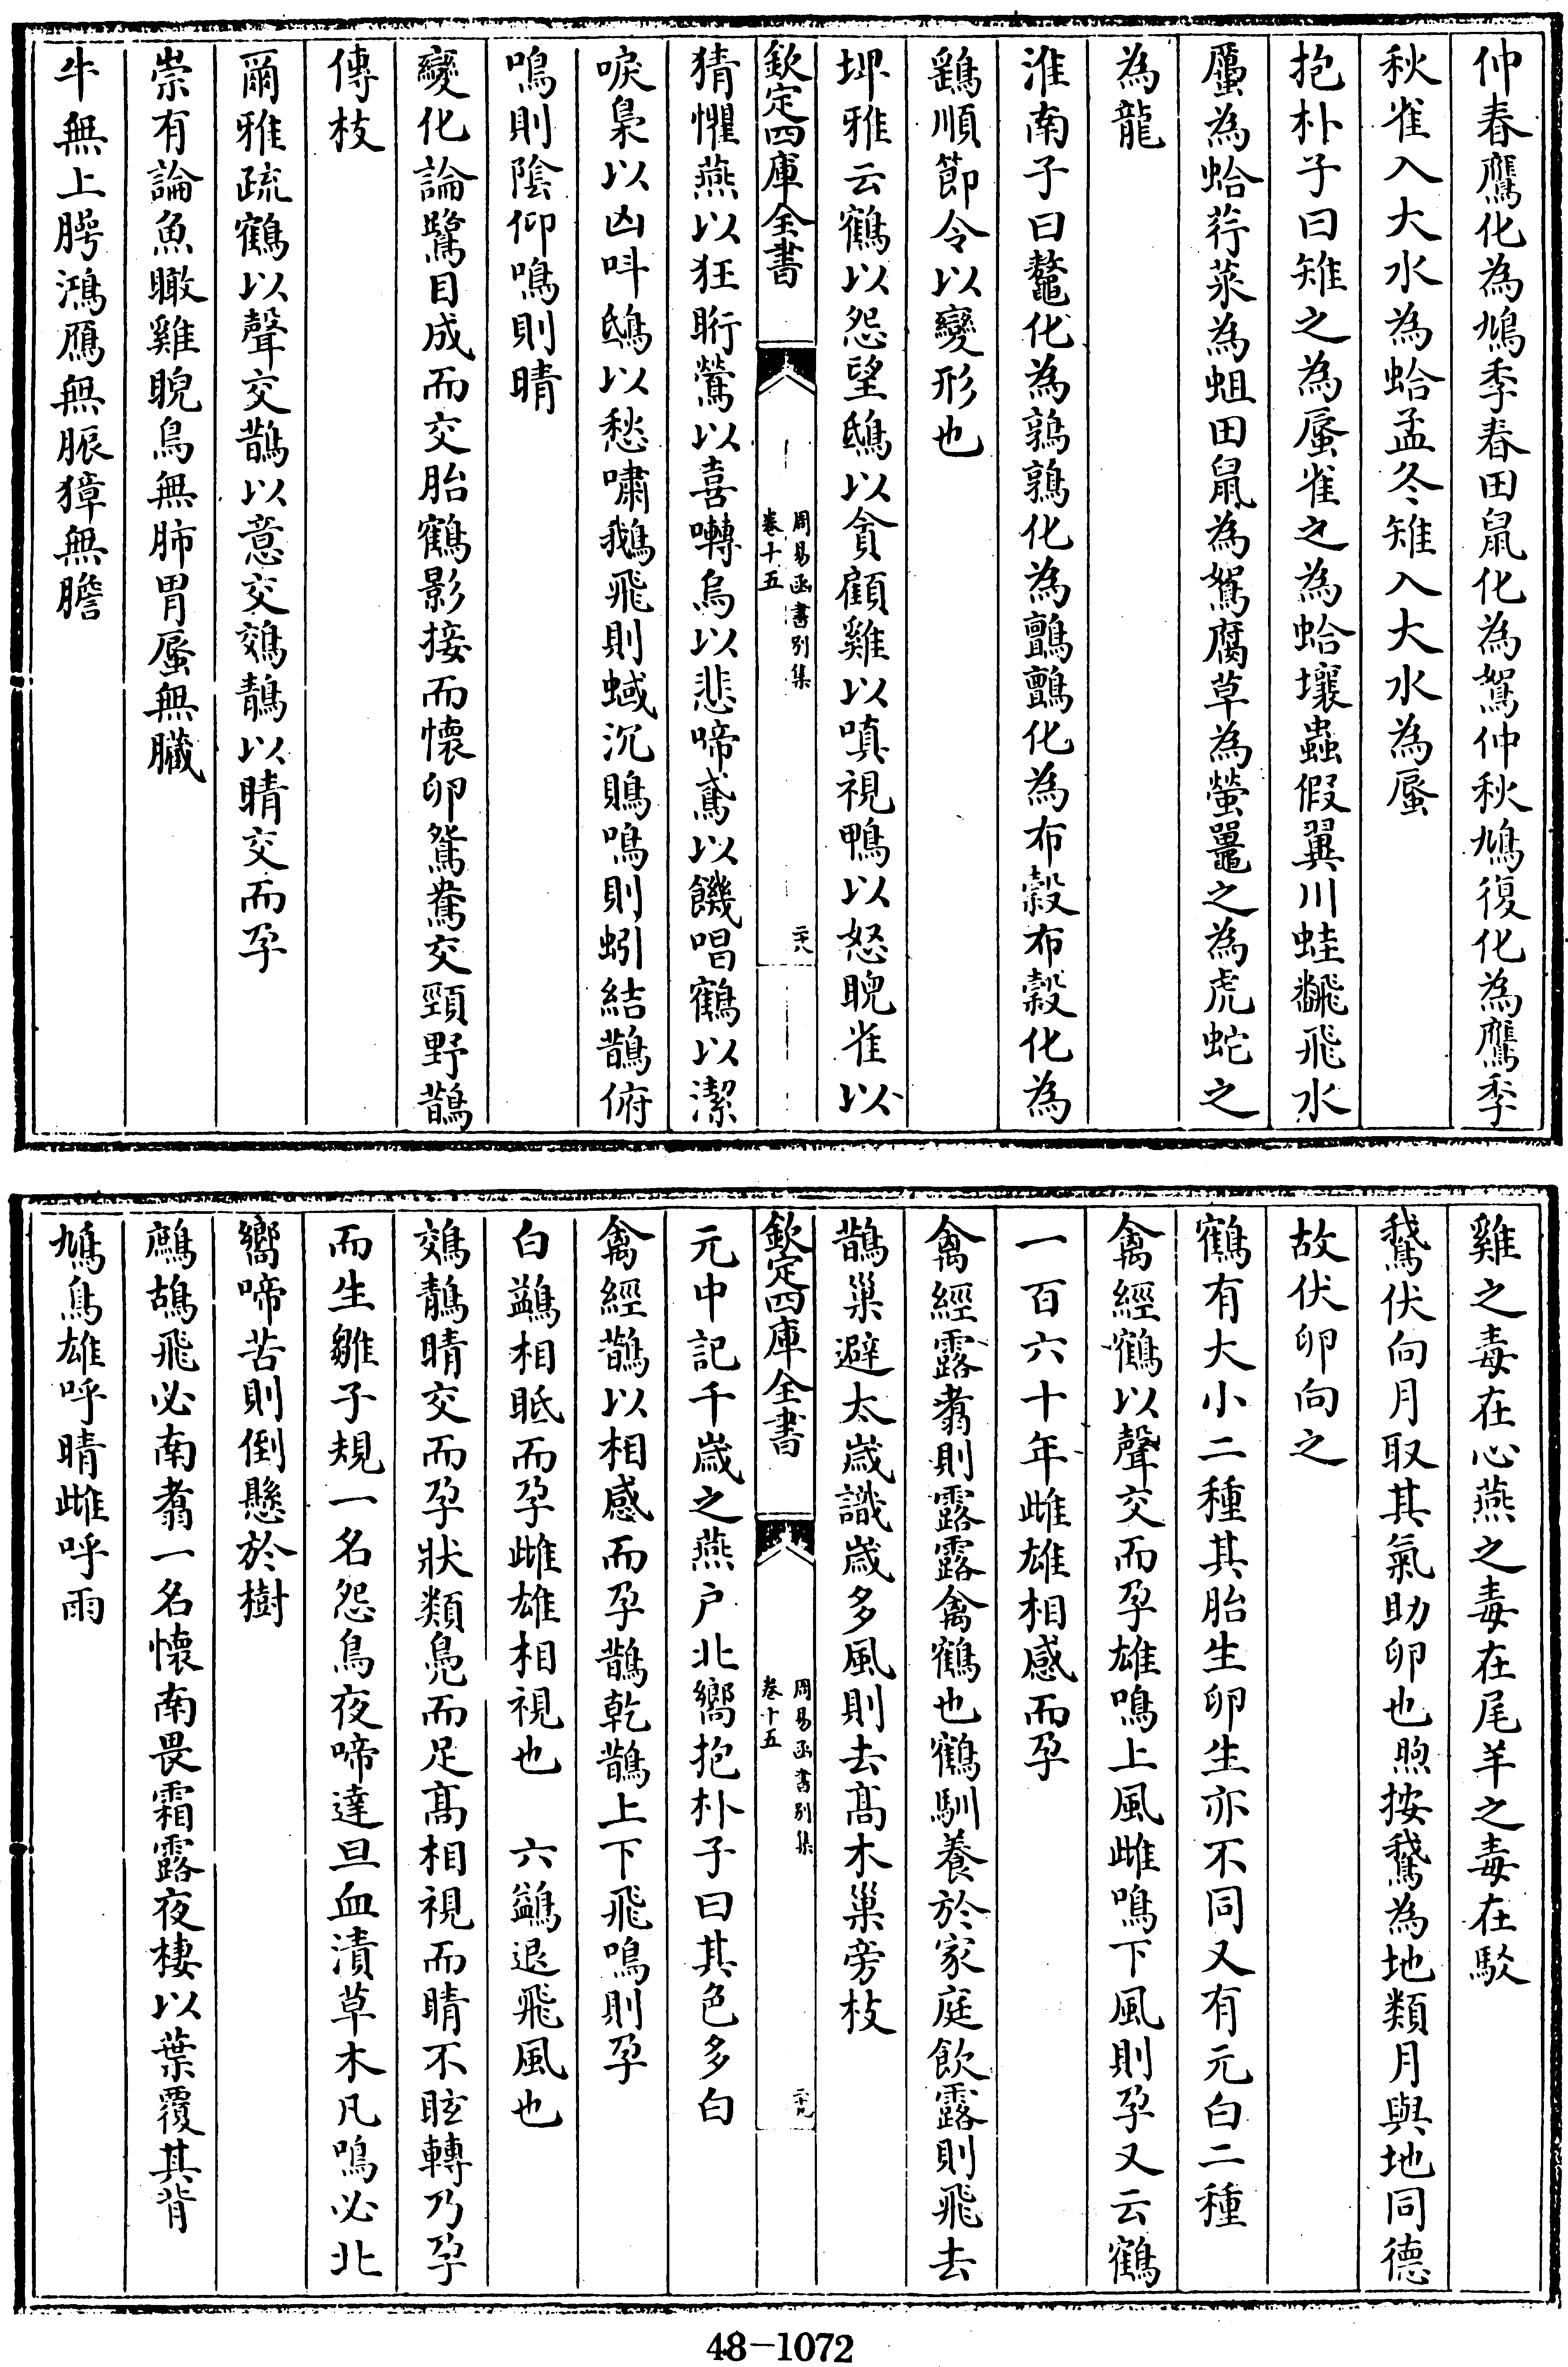 仲春鷹化為鳩季春田鼠化為鴽仲秋鳩復化為鷹季
秋雀入大水為蛤孟冬雉入大水為蜃
抱朴子曰雉之為蜃雀之為蛤壤蟲假翼川蛙飜飛水
蠆為蛤荇菜為蛆田鼠為鴽腐草為螢鼉之為虎蛇之
為龍
淮南子曰鼈化為鶉鶉化為鸇鸇化為布穀布穀化為
鷂順節令以變形也
埤雅云鶴以怨望鴟以貪顧雞以嗔視鴨以怒睨雀以
欽定四庫全書
周易函書別集
卷十五
二十八
猜懼燕以狂眄鶯以喜囀烏以悲啼鳶以饑唱鶴以潔
唳梟以凶呌鴟以愁嘯鵝飛則蜮沉鵙鳴則蚓結鵲俯
鳴則陰仰鳴則晴
變化論鷺目成而交胎鶴影接而懷卵鴛鴦交頸野鵲
傳枝
爾雅疏鶴以聲交鵲以意交鵁鶄以睛交而孕
崇有論魚瞰雞睨鳥無肺胃蜃無臟
牛無上腭鴻鴈無脤獐無膽
雞之毒在心燕之毒在尾羊之毒在駇
鵞伏向月取其氣助卵也煦按鵞為地類月與地同德
故伏卵向之
鶴有大小二種其胎生卵生亦不同又有元白二種
禽經鶴以聲交而孕雄鳴上風雌鳴下風則孕又云鶴
一百六十年雌雄相感而孕
禽經露翥則露露禽鶴也鶴馴養於家庭飲露則飛去
鵲巢避太嵗識嵗多風則去髙木巢旁枝
欽定四庫全書
周易函書別集
卷十五
二十九
元中記千嵗之燕户北嚮抱朴子曰其色多白
禽經鵲以相感而孕鵲乾鵲上下飛鳴則孕
白鷁相眡而孕雌雄相視也　六鷁退飛風也
鵁鶄睛交而孕狀類鳧而足髙相視而睛不眩轉乃孕
而生雛子規一名怨鳥夜啼達旦血漬草木凡鳴必北
嚮啼苦則倒懸於樹
鷓鴣飛必南翥一名懷南畏霜露夜棲以葉覆其背
鳩鳥雄呼晴雌呼雨
48-1072